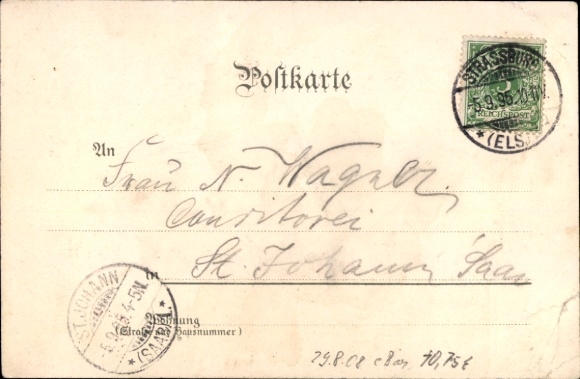 Postkarte
STRASSBURG
5.9.95.
*(ELS.)
5
REICHSPOST
An
Frau N. Wagner
Conditorei
in St. Johann Saar
ST. JOHANN
5.9.95. 4-5N.
*(SAAR)*
Wohnung
(Straße und Hausnummer)
29.8.08